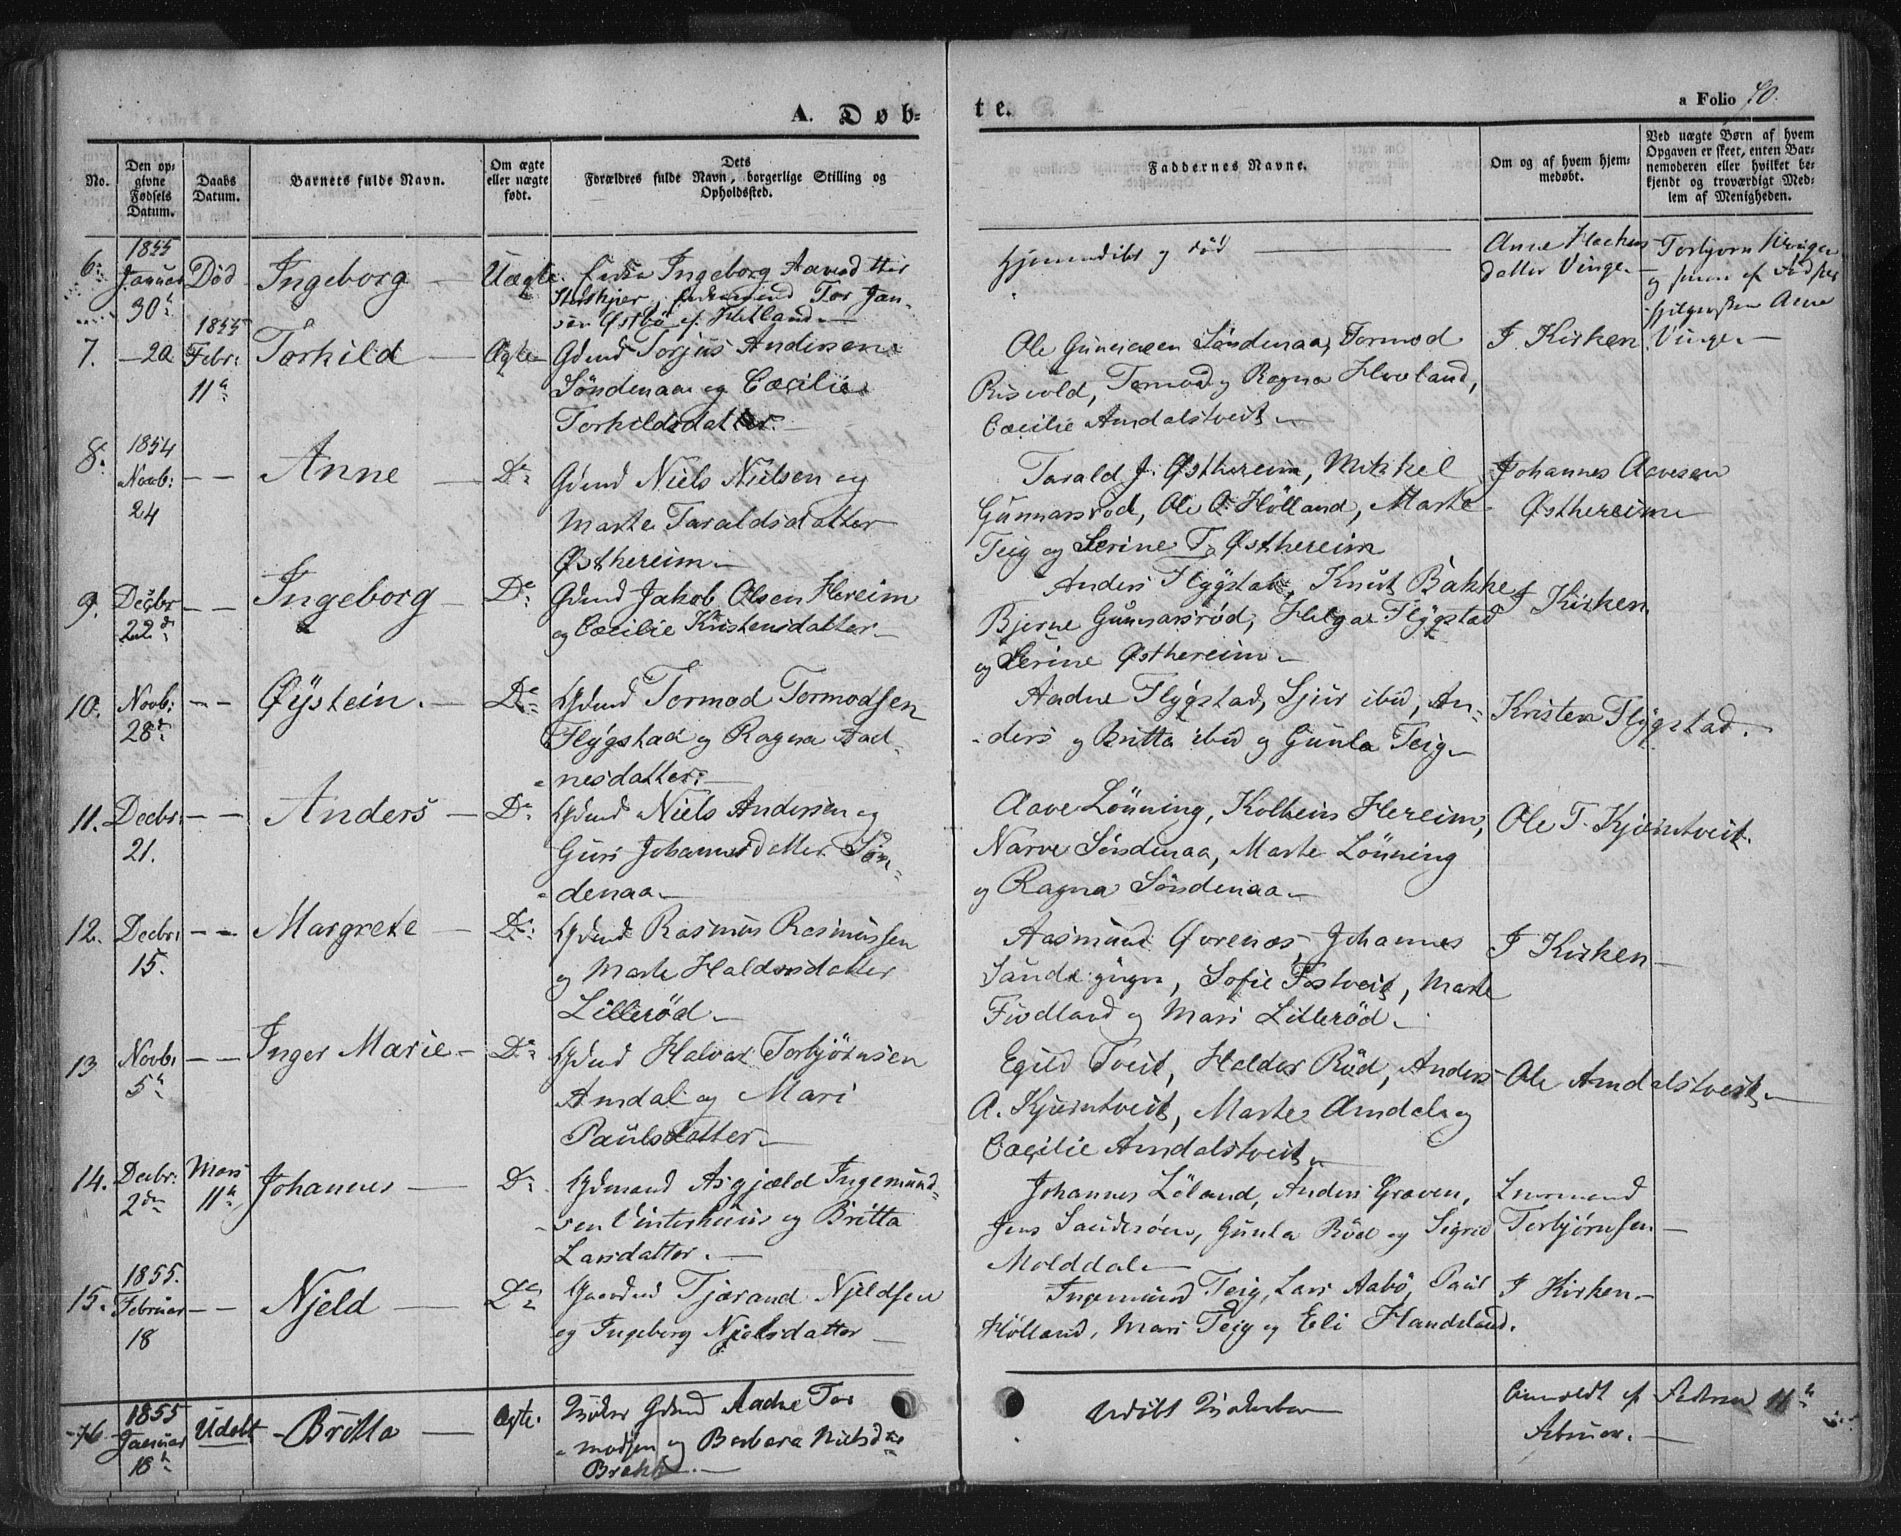 A. Døb-
te.
a Folio 70.
No.
Den op-
givne
Fødsels
Datum.
Daabs
Datum.
Barnets fulde Navn.
Om ægte
eller uægte
født.
Dets
Forældres fulde Navn, borgerlige Stilling og
Opholdssted.
Faddernes Navne.
Om og af hvem hjem-
medøbt.
Ved uægte Børn af hvem
Opgaven er skeet, enten Bar-
nemoderen eller hvilket be-
kjendt og troværdigt Med-
lem af Menigheden.
6. 1855
Januar
30
Død
Ingeborg
Uægte.
Ingeborg
Tor Jan-
sen Østbø af Hetland
Hjemmedøbt og død
Anne
datter Vinge
Torbjørn
og
Anne
Vinge
7. 20
1855
Febr:
11
Torkild
Ægte
Gdmd Torjus Andersen
Søndenaa og Cæcilie
Torkildsdatter
Ole Søndenaa, Tormod
Risvold, Tormod og Ragna Hovland,
Cæcilie Amdalstveit
I Kirken
8. 1854
Novb:
24
Anne
Do
Gdmd Niels Nielsen og
Marte Taraldsdatter
Østhereim
Tarald J. Østhereim, Mikkel
Gunnarsrød, Ole O. Hølland, Marte
Teig og Serine T. Østhereim
Johannes Aavesen
Østhereim
9. Decbr
22
Ingeborg
Do
Gdmd Jakob Olsen Hereim
og Cæcilie Kristensdatter
Anders Flygstad, Knut Bakke
Bjerne Gunnarsrød, Helga Flygstad
og Serine Østhereim
I Kirken
10. Novb:
28
Øystein.
Do
Gdmd Tormod Tormodsen
Flygstad og Ragna Aad-
nesdatter
Aadne Flygstad, Sjur ibid, An-
ders og Britta ibid og Gunla Teig
Kristen Flygstad.
11. Decbr:
21.
Anders
Do
Gdmd Niels Andersen og
Guri Johannesdatter Søn-
denaa
Aave Lønning, Kolbeins Hereim,
Narve Søndenaa, Marte Lønning
og Ragna Søndenaa
Ole T. Kjørntveit.
12. Decbr:
15.
Margrete
Do
Gdmd Rasmus Rasmussen
og Marte Haldorsdatter
Lillerød
Aasmund Øvrenæs, Johannes
Sofie Fostveit, Marte
Fivdland og Mari Lillerød
I Kirken
13 Novb:
5
Inger Marie
Do
Gdmd Halvar Torbjørnsen
Amdal og Mari
Paulsdatter
Egild Tveit, Haldor Rød, Anders
A. Kjørntveit, Marte Amdal og
Cæcilie Amdalstveit
Ole Amdalstveit
14. Decbr:
2
Mars
11
Johannes
Do
Gdmand Asgjæld Ingemund-
sen Vinterhuus og Britta
Larsdatter.
Johannes Løland, Anders Graven,
Jens Gunla Rød og Sigrid
Molddal
Torbjørnsen
15. 1855.
Februar
18
Njeld
Do
Tjærand Njeldsen
og Ingeborg Njelsdatter
Ingemund Teig, Lars Aabø, Paul
Hølland, Mari Teig og Eli Handeland.
I Kirken
76 1855
Januar
18
Udøbt
Britta
Ægte.
Gdmd Aadne Tor
modsen og Barbara Nielsd
Brekke
Anmeldt af Faderen 11
Februar.